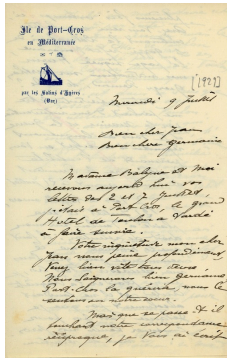 Ile de Port-Cros
en Méditerranée
par les Salins d'Hyères
(Var)
[1929]
Mercredi 9 Juillet
Bien cher Jean
Bien chère Germaine
Madame Balyne et moi
recevons aujourd'hui vos
lettres des 2 et 7 Juillet
à Port Cros le grand
Hotel de Toulon a tardé
à faire suivre
Votre inquiétude mon cher
Jean nous peine profondément
Venez bien vite tous deux
Nous soignerons bien Germaine
Port-Cros la guérira, nous le
sentons en notre cœur.
Mais que se passe-t-il
touchant notre correspondance
réciproque, je vous ai écrit